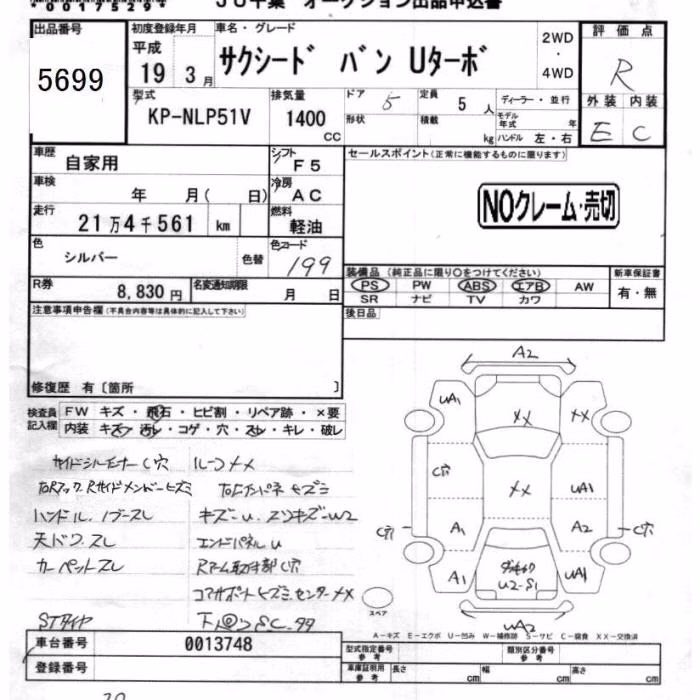 *00175299*
JU千葉 オークション出品申込書
出品番号
5699
初度登録年月
平成
19 3月
車名・グレード
サクシード バン Uターボ
2WD
・
4WD
評価点
R
型式
KP-NLP51V
排気量
1400
CC
ドア 5
形状
定員 5 人
積載 kg
ディーラー・並行
モデル年式 年
ハンドル 左・右
外装 内装
E C
車歴
自家用
シフト
F5
セールスポイント(正常に機能するものに限ります)
車検
年 月( 日)
冷房
AC
NOクレーム・売切
走行
21万4千561 km
燃料
軽油
色
シルバー
色替
色コード
199
装備品(純正品に限り○をつけてください)
新車保証書
PS PW ABS エアB AW
有・無
SR ナビ TV カワ
R券
8,830円
名変通知期限
月 日
後日品
注意事項申告欄(不具合内容等は具体的に記入して下さい)
修復歴 有〔箇所 〕
検査員
記入欄
FW キズ・飛石・ヒビ割・リペア跡・×要
内装 キズ・汚レ・コゲ・穴・スレ・キレ・破レ
サイドシルインナーC穴
ハンドル.ノブスレ
キズーU.スリキズーW2
天ドワ.スレ
エンドパネルU
カーペットスレ
Rアーム取付部C穴
コアサポートヒズミ.センターメメ
STタイヤ
A2
UA1
XX
XX
C穴
XX
UA1
C穴
A1
A2
C穴
A1
U2-S1
UA1
スペア
UA2
A-キズ E-エクボ U-凹み W-補修跡 S-サビ C-腐食 XX-交換済
車台番号
0013748
登録番号
型式指定番号
参考
類別区分番号
参考
車庫証明用
参考
長さ cm
幅 cm
高さ cm